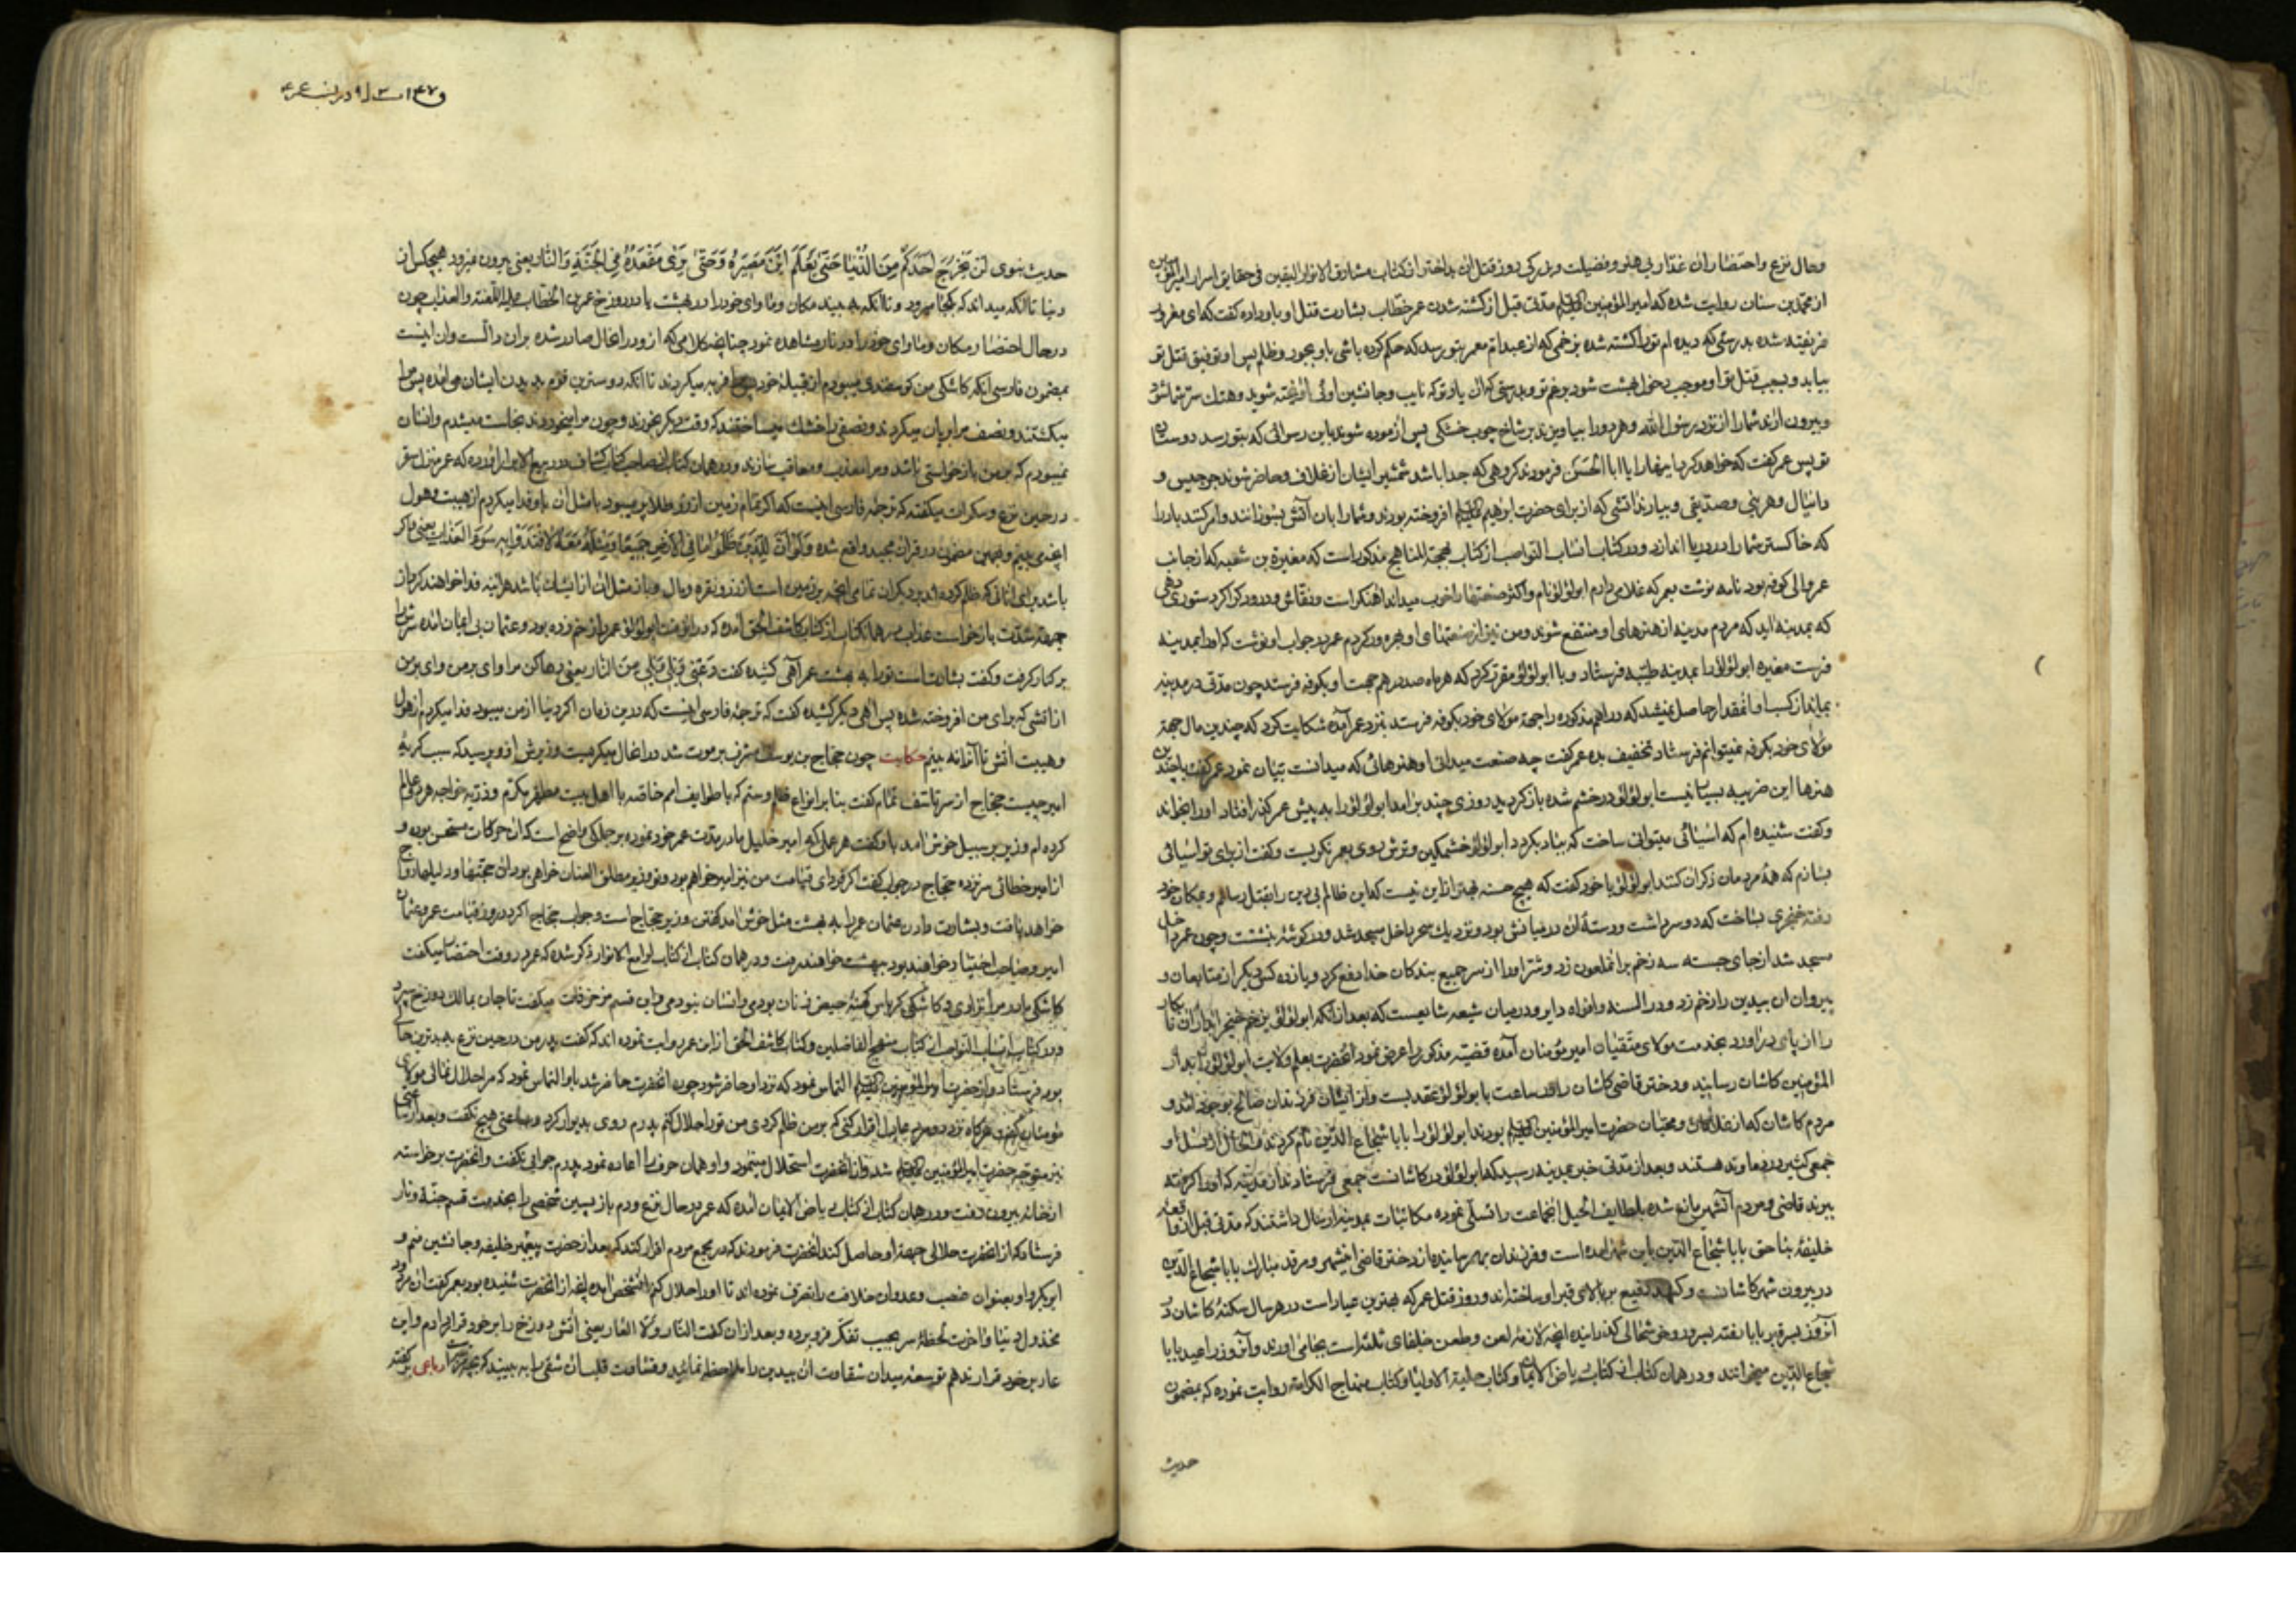 وحال نزع واحتضار ان غدار بی هنر و فضیلت و بزرکی روز قتل ان بداختر از کتاب مشارق الانوار الیقین فی حقایق اسرار امیرالمؤمنین
از محمد بن سنان روایت شده که امیرالمؤمنین مدتی قبل از کشته شدن عمر خطاب بشارت قتل او باو داده گفت که ای مغرور
فریفته شده بدرستی که دیده ام ترا کشته شده بزخمی که از عبد ام معمر بتو رسد که حکم کرده باشی باو بجور و ظلم پس او توفیق قتل تو
بیابد و بسبب قتل تو او موجب دخول بهشت شود برغم تو و بدرستی که ان یار تو که نایب و جانشین و هتک ستر شما شود
و بیرون ارند شما را از نزد رسول الله و هر دو را بیاویزند بر شاخ چوب خشکی پس ازموده شوند باین رسوائی که بتو رسد دوستان
تو پس عمر کفت که خواهد کرد یا ابا الحسن فرمودند کروهی که جدا باشد شمشیر ایشان از غلاف و حاضر شوند جرجیس و
دانیال و هر نبی و صدیقی و بیارند اتشی که از برای حضرت ابراهیم افروخته بودند و شما را بان آتش بسوزانند و امر کنند باد را
که خاکستر شما را در دریا اندازد و در کتاب انساب النواصب از کتاب بهجة المناهج مذکور است که مغیرة بن شعبه که از جانب
عمر والی کوفه بود نامه نوشت بعمر که غلامی دارم ابولؤلؤ نام و اکثر صنعتها را خوب میداند اهنکر است و نقاش و درودکر اکر دستوری دهی
که بمدینه اید که مردم مدینه از هنرهای او منتفع شوند و من نیز از صنعتهای او بهره ور کردم عمر در جواب او نوشت که او را بمدینه
فرست مغیره ابولؤلؤ را بمدینه طیبه فرستاد و با ابولؤلؤ مقرر کرد که هر ماه صد درهم جهت او بکوفه فرستد چون مدتی در مدینه
بماند از کسب او انمقدار حاصل نمیشد که دراهم مذکوره را جهة مولای خود بکوفه فرستد نزد عمر آمده شکایت کرد که چندین مال جهة
مولای خود بکوفه نمیتوانم فرستاد تخفیف بده عمر کفت چه صنعت میدانی او هنرهائی که میدانست بیان نمود عمر کفت با چندین
هنرها این ضریبه بسیار نیست ابولؤلؤ در خشم شده باز کردید روزی چند بر امد ابولؤلؤ را به پیش عمر کذر افتاد او را بخواند
و کفت شنیده ام که اسیائی میتوانی ساخت که بباد بکردد ابولؤلؤ خشمکین و ترش روی بعمر نکریست و کفت از برای تو اسیائی
بسازم که همه مردمان ذکر ان کنند ابولؤلؤ با خود کفت که هیچ حسنه بهتر از این نیست که این ظالم بی دین را بقتل رسانم و بمکان خود
رفته خنجری بساخت که دو سر داشت و دسته ان در میانش بود و نزدیک سحر داخل مسجد شد و در کوشه بنشست و چون عمر داخل
مسجد شد از جای جسته سه زخم بر انملعون زد و شر او را از سر جمیع بندکان خدا دفع کرد و یازده کس دیکر از متابعان و
پیروان ان بیدین را زخم زد و در السنه و افواه دایر و در میان شیعه شایعست که بعد از انکه ابولؤلؤ بزخم خنجر ان نابکار
را از پای در اورد بخدمت مولای متقیان امیر مؤمنان آمده قضیه مذکور را عرض نمود انحضرت بعلم ولایت ابولؤلؤ را بدار
المؤمنین کاشان رسانید و دختر قاضی کاشان را در ساعت با ابولؤلؤ عقد بست و از ایشان فرزندان صالح بوجود امد و
مردم کاشان که از غلامان و محبان حضرت امیرالمؤمنین بودند ابولؤلؤ را بابا شجاع الدین نام کردند از نسل او
جمعی کثیر در هستند و بعد از مدتی خبر بمدینه رسید که ابولؤلؤ در کاشانست جمعی فرستادند از مدینه که او را کرفته
ببرند قاضی و مردم آنشهر مانع شده بلطایف الحیل انجماعت را تسلی نموده مکاتبات بمدینه ارسال داشتند که مدتی قبل از واقعه
خلیفه بناحق بابا شجاع الدین باین شهر امده است و فرزندان بهم رسانیده از دختر قاضی اینشهر و مرقد مبارک بابا شجاع الدین
در بیرون شهر کاشانست و کنبد رفیع بر بالای قبر او ساخته اند و روز قتل عمر که بهترین عیار است در هر سال سکنه کاشان در
آنروز بسر قبر بابا رفته بسرور و خوشحالی کذرانیده انچه لازمه لعن و طعن خلفای ثلثه است بجا می اورند و آنروز را عید بابا
شجاع الدین میخوانند و در همان کتاب از کتاب ریاض الایمان و کتاب حلیة الاولیا و کتاب منهاج الکرامه روایت نموده که بمضمون
حدیث
حدیث نبوی لن یخرج احدکم من الدنیا حتی یعلم این مصیره و حتی یری مقعده فی الجنة و النار یعنی بیرون نمیرود هیچکس از
دنیا تا انکه میداند که بکجا میرود و تا انکه به بیند مکان و ماوای خود را در بهشت یا در دوزخ عمر بن الخطاب علیه اللعنه والعذاب چون
در حال احتضار مکان و ماوای خود را در نار مشاهده نمود چنانچه کلامی که از و در انحال صادر شده بران دالست و ان اینست
بمضمون فارسی انکه کاشکی من کوسفندی میبودم از قبیله خود فربه میکردند تا انکه دوسترین قوم بدیدن ایشان می امده پس مرا
میکشتند و نصف مرا بریان میکردند و نصفی را خشک میساختند که وقت دیکر بخورند و چون مرا میخوردند نجاست میشدم و انسان
نمیبودم که بر من بازخواستی باشد و مرا معذب و معاقب سازند و در همان کتاب از صاحب کتاب کشاف در ربیع الابرار اورده که عمر
در حین نزع و سکرات میکفته که ترجمه فارسی اینست که اکر تمام زمین از زر و طلا پر میبود با مثل ان باو فدا میکردم از هیبت و هول
انچه می بینم و بهمین مضمون در قران مجید واقع شده ولو ان للذین ظلموا ما فی الارض جمیعا ومثله معه لافتدوا به من سوء العذاب یعنی اکر
باشد برای انانی که ظلم کرده اند بر دیکران تمامی انچه بر زمین است از زر و نقره و مال و باز مثل ان از ایشان باشد هراینه فدا خواهند کرد از
جهة شدت بازخواست عذاب در همان کتاب از کتاب کاشف الحق امده که در انوقت ابولؤلؤ عمر را زخم زده بود و عثمان بی ایمان امده سرش را
بر کنار کرفت و کفت بشارتست ترا به بهشت عمر آهی کشیده کفت دعنی ویلی ویلی من النار یعنی رها کن مرا وای بر من وای بر من
از اتشی که برای من افروخته شده پس اهی دیکر کشیده کفت که ترجمه فارسی اینست که درین زمان اکر دنیا از من میبود فدا میکردم از هول
و هیبت اتش تا آنرا نه بینم حکایت چون حجاج بن یوسف مشرف بر موت شد در انحال میکریست وزیرش از و پرسید که سبب کریه
امیر چیست حجاج از سر تاسف تمام کفت بنا بر انواع ظلم و ستم که با طوایف امم خاصه با اهل بیت مطهر مکرم و ذریه خواجه هر دو عالم
کرده ام وزیر بر سبیل خوش امد باو کفت هر عملی که امیر جلیل در مدت عمر خود نموده بر جملکی واضح است که ان حرکات مستحسن بوده و
از امیر خطائی سر نزده حجاج در جواب کفت اکر فردای قیامت من نیز امیر خواهم بود و تو وزیر مطلق العنان خواهی بود ان حجتها و دلیلها رواج
خواهد یافت و بشارت دادن عثمان عمر را به بهشت مثل خوش امد کفتن وزیر حجاج است و جواب حجاج اکر در روز قیامت عمر و عثمان
امیر و صاحب اختیار خواهند بود ببهشت خواهند رفت و در همان کتاب از کتاب لوامع الانوار ذکر شده که عمر در وقت احتضار میکفت
کاشکی مادر مرا نزادی و کاشکی کرباس کهنه حیض زنان بودی و انسان نبودمی و این قسم مزخرفات میکفت تا جان بمالک دوزخ سپرد
و در کتاب انساب النواصب از کتاب منهج الفاضلین و کتاب کاشف الحق از ابن عمر روایت نموده اند که کفت پدر من در حین نزع
فرستاد و از حضرت امیرالمؤمنین التماس نمود که نزد او حاضر شود چون انحضرت حاضر شد باو التماس نمود که مرا حلال نمائی مولای
مؤمنان کفت هرکاه نزد دو مرد عادل اقرار کنی که بر من ظلم کردی من ترا حلال کنم پدرم روی بدیوار کرد و ساعتی هیچ نکفت و بعد از ساعتی
نیز متوجه حضرت امیرالمؤمنین شد و از انحضرت استحلال مینمود و او همان حرف را اعاده نمود پدرم جوابی نکفت و انحضرت برخاسته
از خانه بیرون رفت و در همان کتاب از کتاب ریاض الایمان امده که عمر در حال نزع و دم باز پسین شخصی را بخدمت قسیم جنة و نار
فرستاد که از انحضرت حلالی جهة او حاصل کند انحضرت فرمودند که در مجمع مردم اقرار کند که بعد از حضرت پیغمبر خلیفه و جانشین منم و
ابوبکر و او بعنوان غصب و عدوان خلافت را تصرف نموده اند تا او را حلال کنم انشخص امده انچه از انحضرت شنیده بود بعمر کفت ان مردود
مخذول دنیا و اخرت لحظه سر بجیب تفکر فرو برده و بعد از ان کفت النار ولا العار یعنی اتش دوزخ را بر خود قرار دادم و این
عار بر خود قرار ندهم توسعه میدان شقاوت ان بیدین را ملاحظه نمائید و قساوت قلب ان شقی را به بینید که رباعی